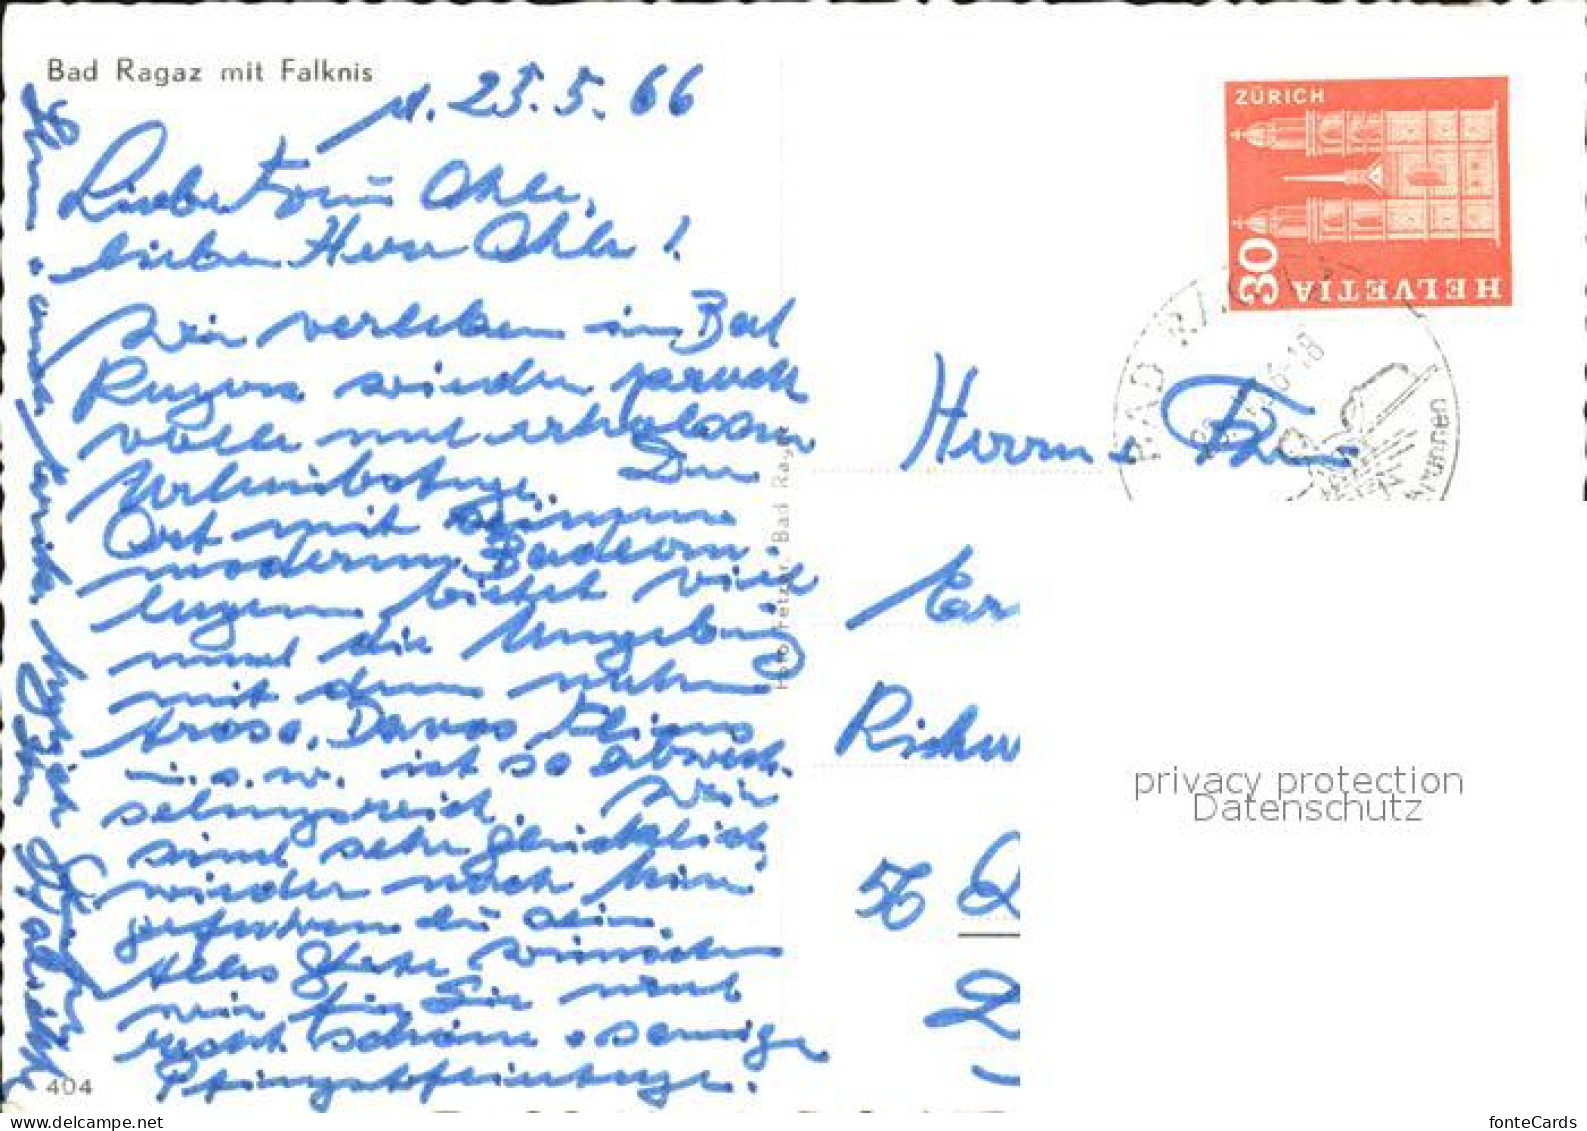 Bad Ragaz mit Falknis
25.5.66
Liebe Frau Ohle,
lieber Herr Ohle!
Wir verleben in Bad
Ragaz wieder pracht
volle und erholsame
Urlaubstage. Der
Ort mit seinen
modernen Badean-
lagen bietet viel
und die Umgebung
mit dem nahen
Arosa, Davos, Flims
u.s.w. ist so abwech-
selungsreich. Wir
sind sehr glücklich,
wieder nach hier
gefahren zu sein.
Alles Gute wünschen
wir für Sie und
recht schöne sonnige
Pfingstfeiertage.
404
Foto Fetzer, Bad Ragaz
ZÜRICH
30
HELVETIA
BAD RAGAZ
-18
Herrn + Frau
56
privacy protection
Datenschutz
fonteCards